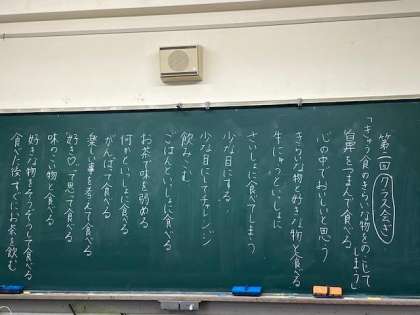 第一回 クラス会ぎ
「きゅう食のきらいな物をのこしてしまう」
鼻をつまんで食べる
心の中でおいしいと思う
きらいな物と好きな物を食べる
牛にゅうといっしょに
さいしょに食べてしまう
少な目にする
少な目にしてチャレンジ
飲みこむ
ごはんといっしょに食べる
お茶で味を弱める
何かといっしょに食べる
がんばって食べる
楽しい事を考えて食べる
好き♡って思って食べる
味のこい物と食べる
好きな物をそうぞうして食べる
食べた後すぐにお茶を飲む